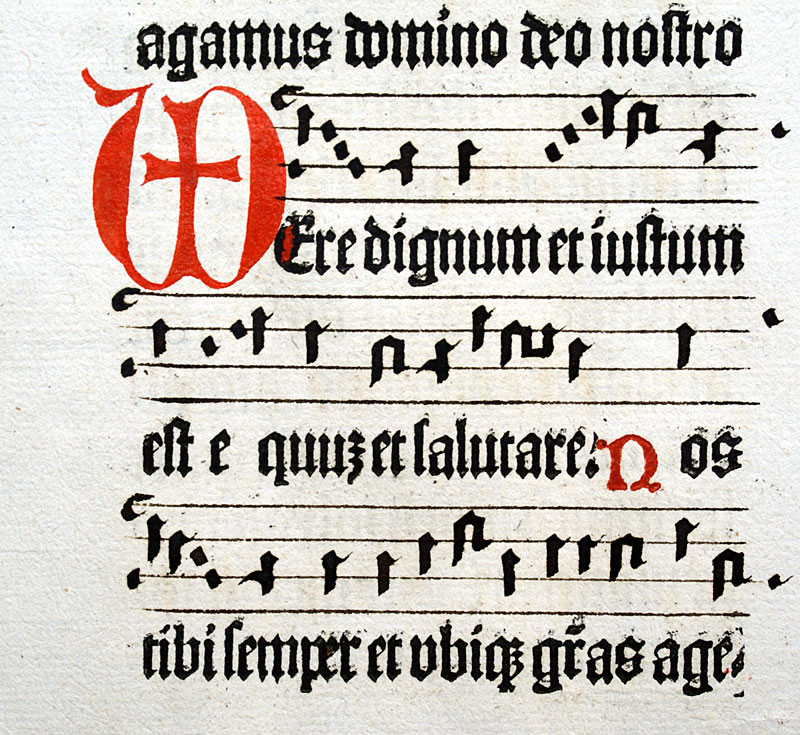 agamus domino deo nostro
VEre dignum et iustum
est e quuz et salutare: Nos
tibi semper et vbiqz gras age